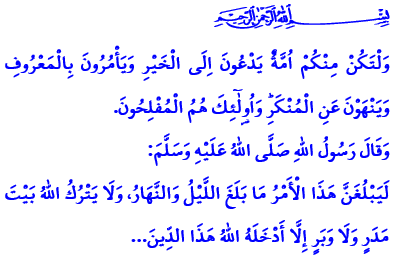 بِسْــــــــمِ اللهِ الرَّحْمٰنِ الرَّحِيمِ
وَلْتَكُنْ مِنْكُمْ اُمَّةٌ يَدْعُونَ اِلَى الْخَيْرِ وَيَأْمُرُونَ بِالْمَعْرُوفِ
وَيَنْهَوْنَ عَنِ الْمُنْكَرِۜ وَاُو۬لٰٓئِكَ هُمُ الْمُفْلِحُونَ.
وَقَالَ رَسُولُ اللهِ صَلَّى اللهُ عَلَيْهِ وَسَلَّمَ:
لَيَبْلُغَنَّ هَذَا الْأَمْرُ مَا بَلَغَ اللَّيْلُ وَالنَّهَارُ، وَلَا يَتْرُكُ اللهُ بَيْتَ
مَدَرٍ وَلَا وَبَرٍ إِلَّا أَدْخَلَهُ اللهُ هَذَا الدِّينَ...